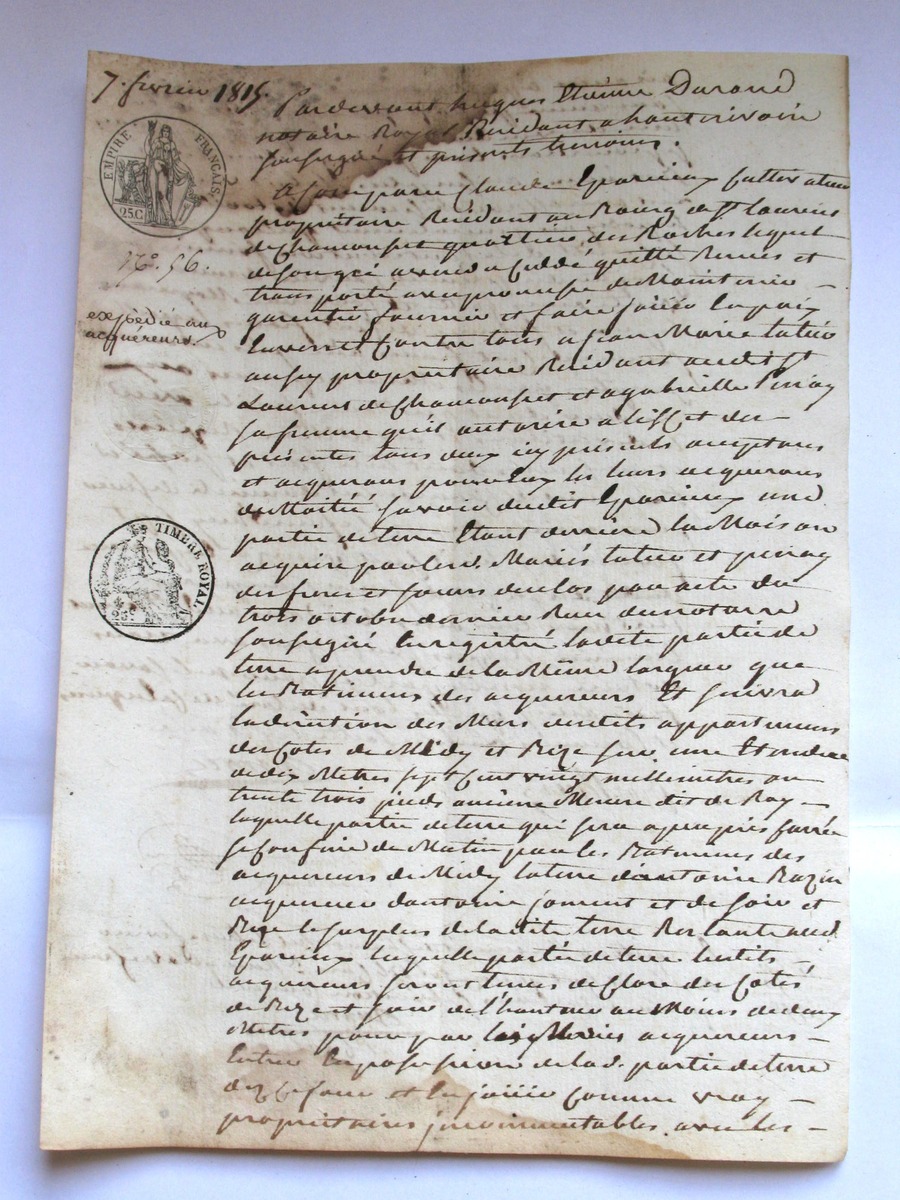 7. fevrier 1815.
EMPIRE FRANÇAIS.
25.C
N°. 56.
expedié aux
acquéreurs.
TIMBRE ROYAL
25c
Pardevant hugues Etienne Durand
notaire Royal Residant a haut rivoire
soussigné et presents temoins.
A Comparu Claude Eparieux Cultivateur
propriétaire Residant au Bourg de St Laurent
de Chamousset quartier des Roches lequel
de son gré a vendu Cuddé quitté Remis et
transporté avec promesse de Maintenir
garentir fournir et faire jouir En paix
Envers et Contre tous a jean Marie
aussy propriétaire Residant audit St
Laurent de Chamousset et a gabrielle
sa femme qu'il autorise a l'effet des
présentes tous deux icy présents acceptans
et acquerans pour Eux les leurs acquerans
de Moitié savoir dudit Eparieux une
partie de terre Etant derrière la Maison
acquise par lesd. Mariés et
des freres et sœurs duclos par acte du
trois octobre dernier Reçu du notaire
soussigné Enregistré ladite partie de
terre a prendre de la Même largeur que
les Batimens des acquereurs Et suivra
la direction des Murs desdits appartemens
des Cotés de Midy et Bize sur une Etendue
de dix Metres sept Cent vingt millimetres ou
trente trois pieds ancienne Mesure dit de Roy
laquelle partie de terre qui sera a peu près Carrée
se Confine de Matin par les Batimens des
acquereurs de Midy la terre d'antoine Bazin
acquereur d'antoine joment et de soir et
Bize le surplus de la dite terre Restante aud.
Eparieux laquelle partie de terre lesdits
acquereurs seront tenus de Clore des Cotés
de Bize et soir de l'hauteur au Moins de deux
Metres pour par les Mariés acquereurs
Entrer En possession de lad. partie de terre
dez Ce jour et En jouir Comme vray
propriétaires incommutables avec les